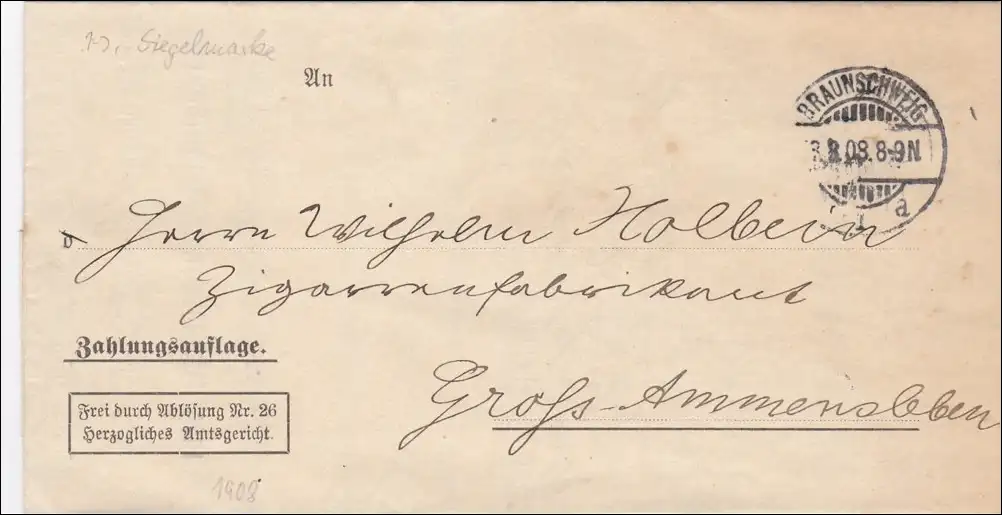 Siegelmarke
An
BRAUNSCHWEIG
08.8-9N
a
d
Herrn Wilhelm Holbein
Zigarrenfabrikant
Zahlungsauflage.
Gross-Ammensleben
Frei durch Ablösung Nr. 26
Herzogliches Amtsgericht.
1908